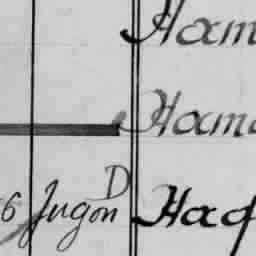 Ham
Ham
6 Jugon D Haq